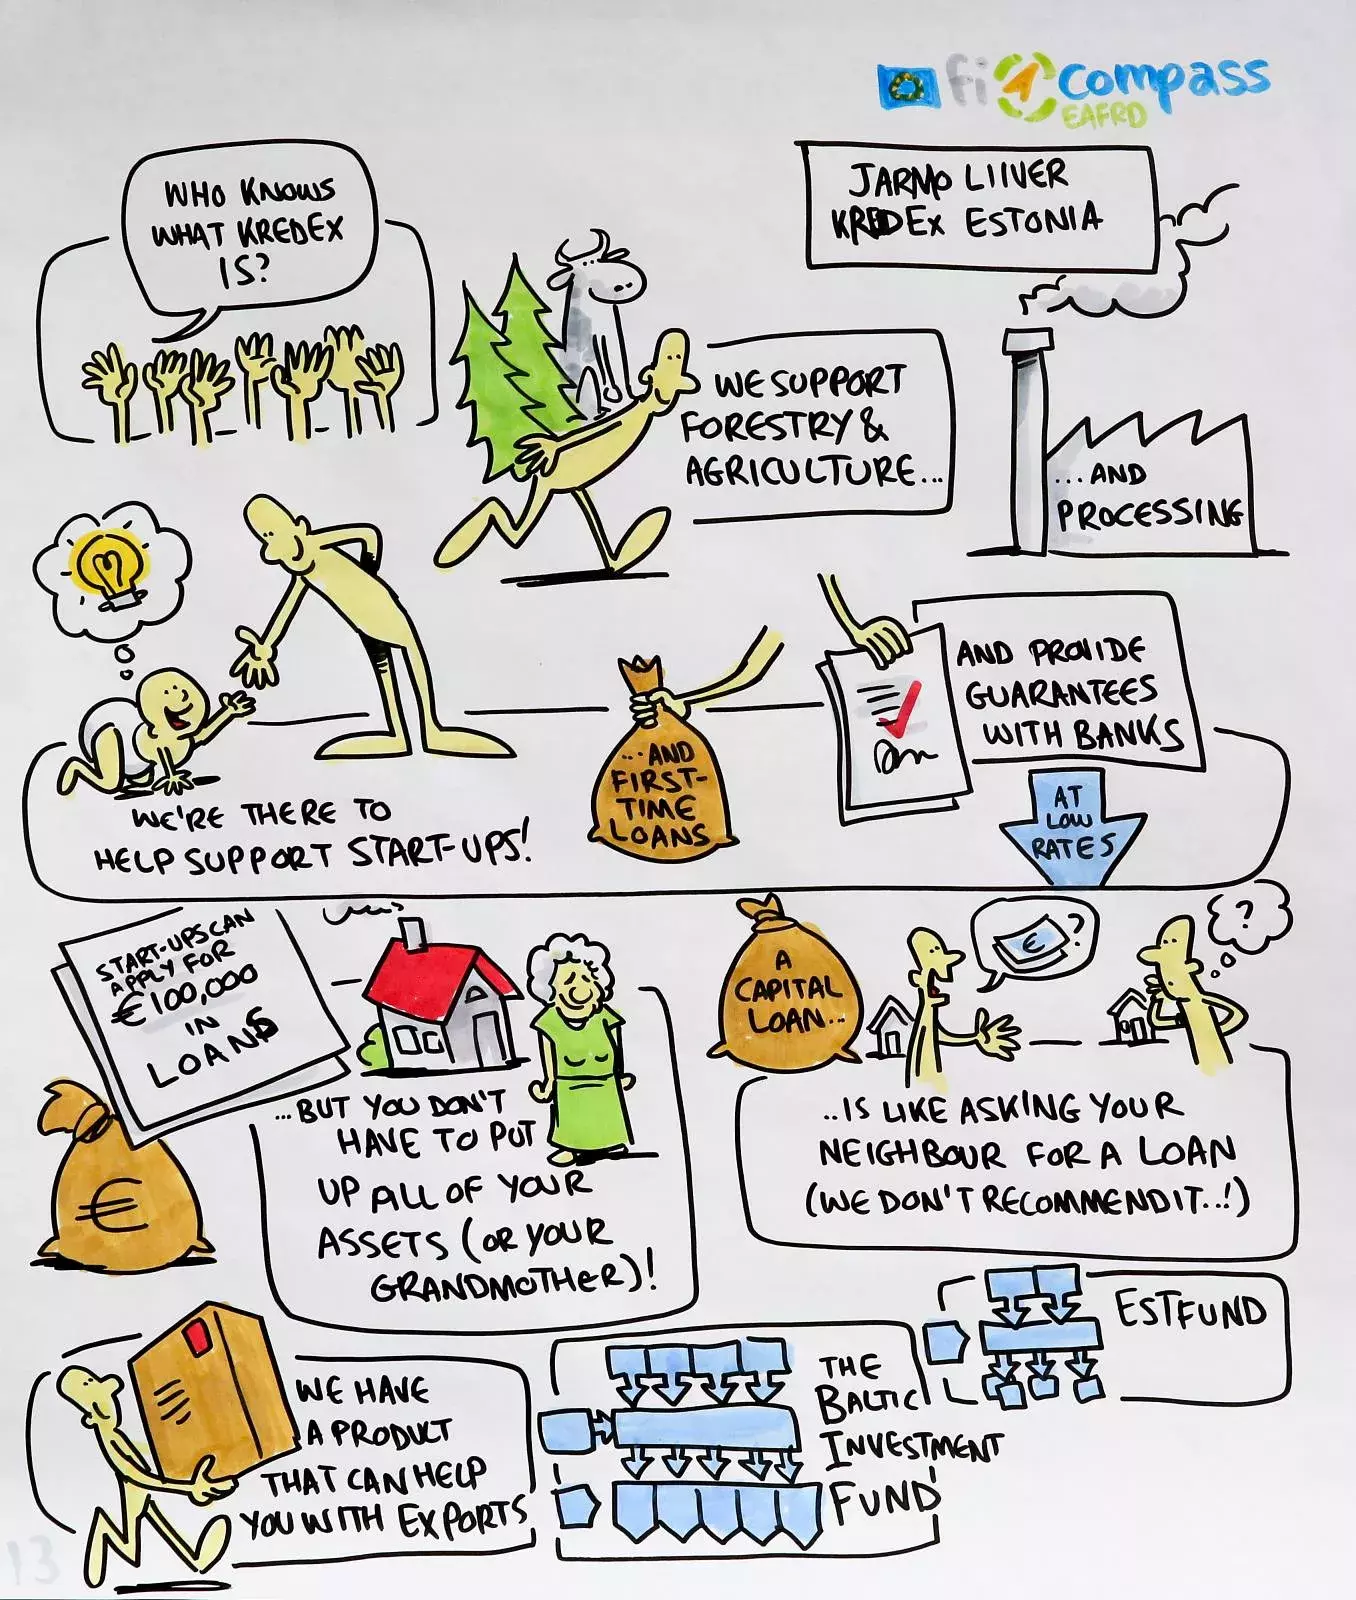 fi compass
EAFRD
JARMO LIIVER
KREDEX ESTONIA
WHO KNOWS
WHAT KREDEX
IS?
WE SUPPORT
FORESTRY &
AGRICULTURE...
...AND
PROCESSING
WE'RE THERE TO
HELP SUPPORT START-UPS!
...AND
FIRST-
TIME
LOANS
AND PROVIDE
GUARANTEES
WITH BANKS
AT
LOW
RATES
START-UPS CAN
APPLY FOR
€100,000
IN
LOANS
€
...BUT YOU DON'T
HAVE TO PUT
UP ALL OF YOUR
ASSETS (OR YOUR
GRANDMOTHER)!
A
CAPITAL
LOAN...
€ ?
?
..IS LIKE ASKING YOUR
NEIGHBOUR FOR A LOAN
(WE DON'T RECOMMEND IT..!)
WE HAVE
A PRODUCT
THAT CAN HELP
YOU WITH EXPORTS
THE
BALTIC
INVESTMENT
FUND
ESTFUND
13